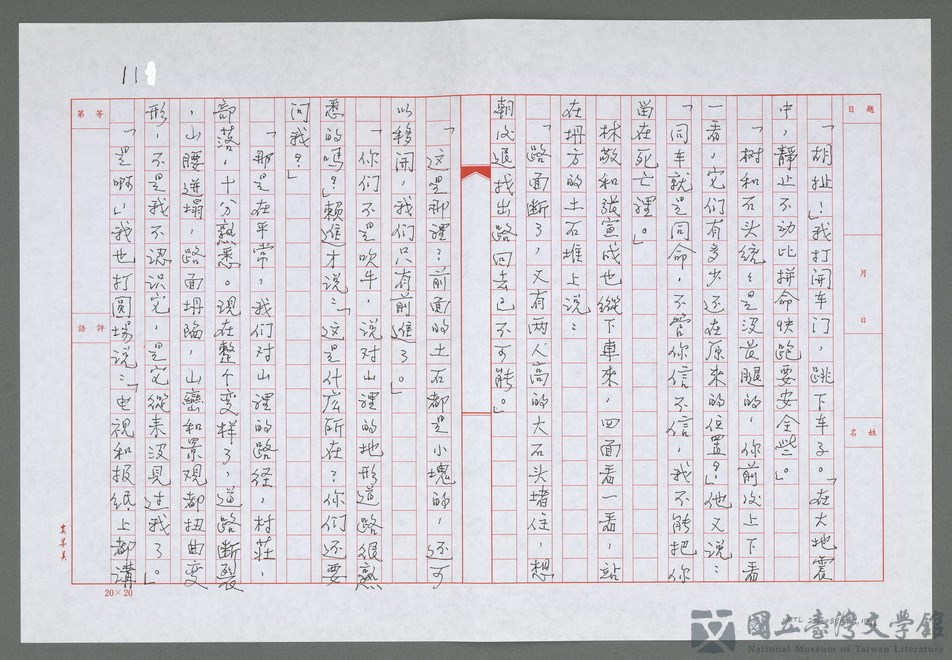 11
題目
月
日
姓名
等第
評語
「胡扯！」我打開车门，跳下车子。「在大地震
中，靜止不动比拼命快跑要安全些。」
「树和石头統統是没長腿的，你前后上下看
一看，它们有多少还在原来的位置？」他又说：
「同车就是同命，不管你信不信，我不能把你
留在死亡裡。」
林敬和張宣成也縱下車來，四面看一看，站
在坍方的土石堆上说：
「路面断了，又有两人高的大石头堵住，想
朝后退找出路回去已不可能。」
「这是那裡？前面的土石都是小塊的，还可
以移開，我们只有前進了。」
「你们不是吹牛，说对山裡的地形道路很熟
悉的嗎？」賴進才说：「这是什么所在？你们还要
问我？」
「那是在平常，我们对山裡的路径，村莊，
部落，十分熟悉。现在整个变样了，道路断裂
，山腰迸塌，路面坍陷，山巒和景观都扭曲变
形，不是我不認识它，是它從来没見过我了。」
「是啊！」我也打圓場说：「电視和报紙上都講
20×20
國立臺灣文學館
National Museum of Taiwan Literature